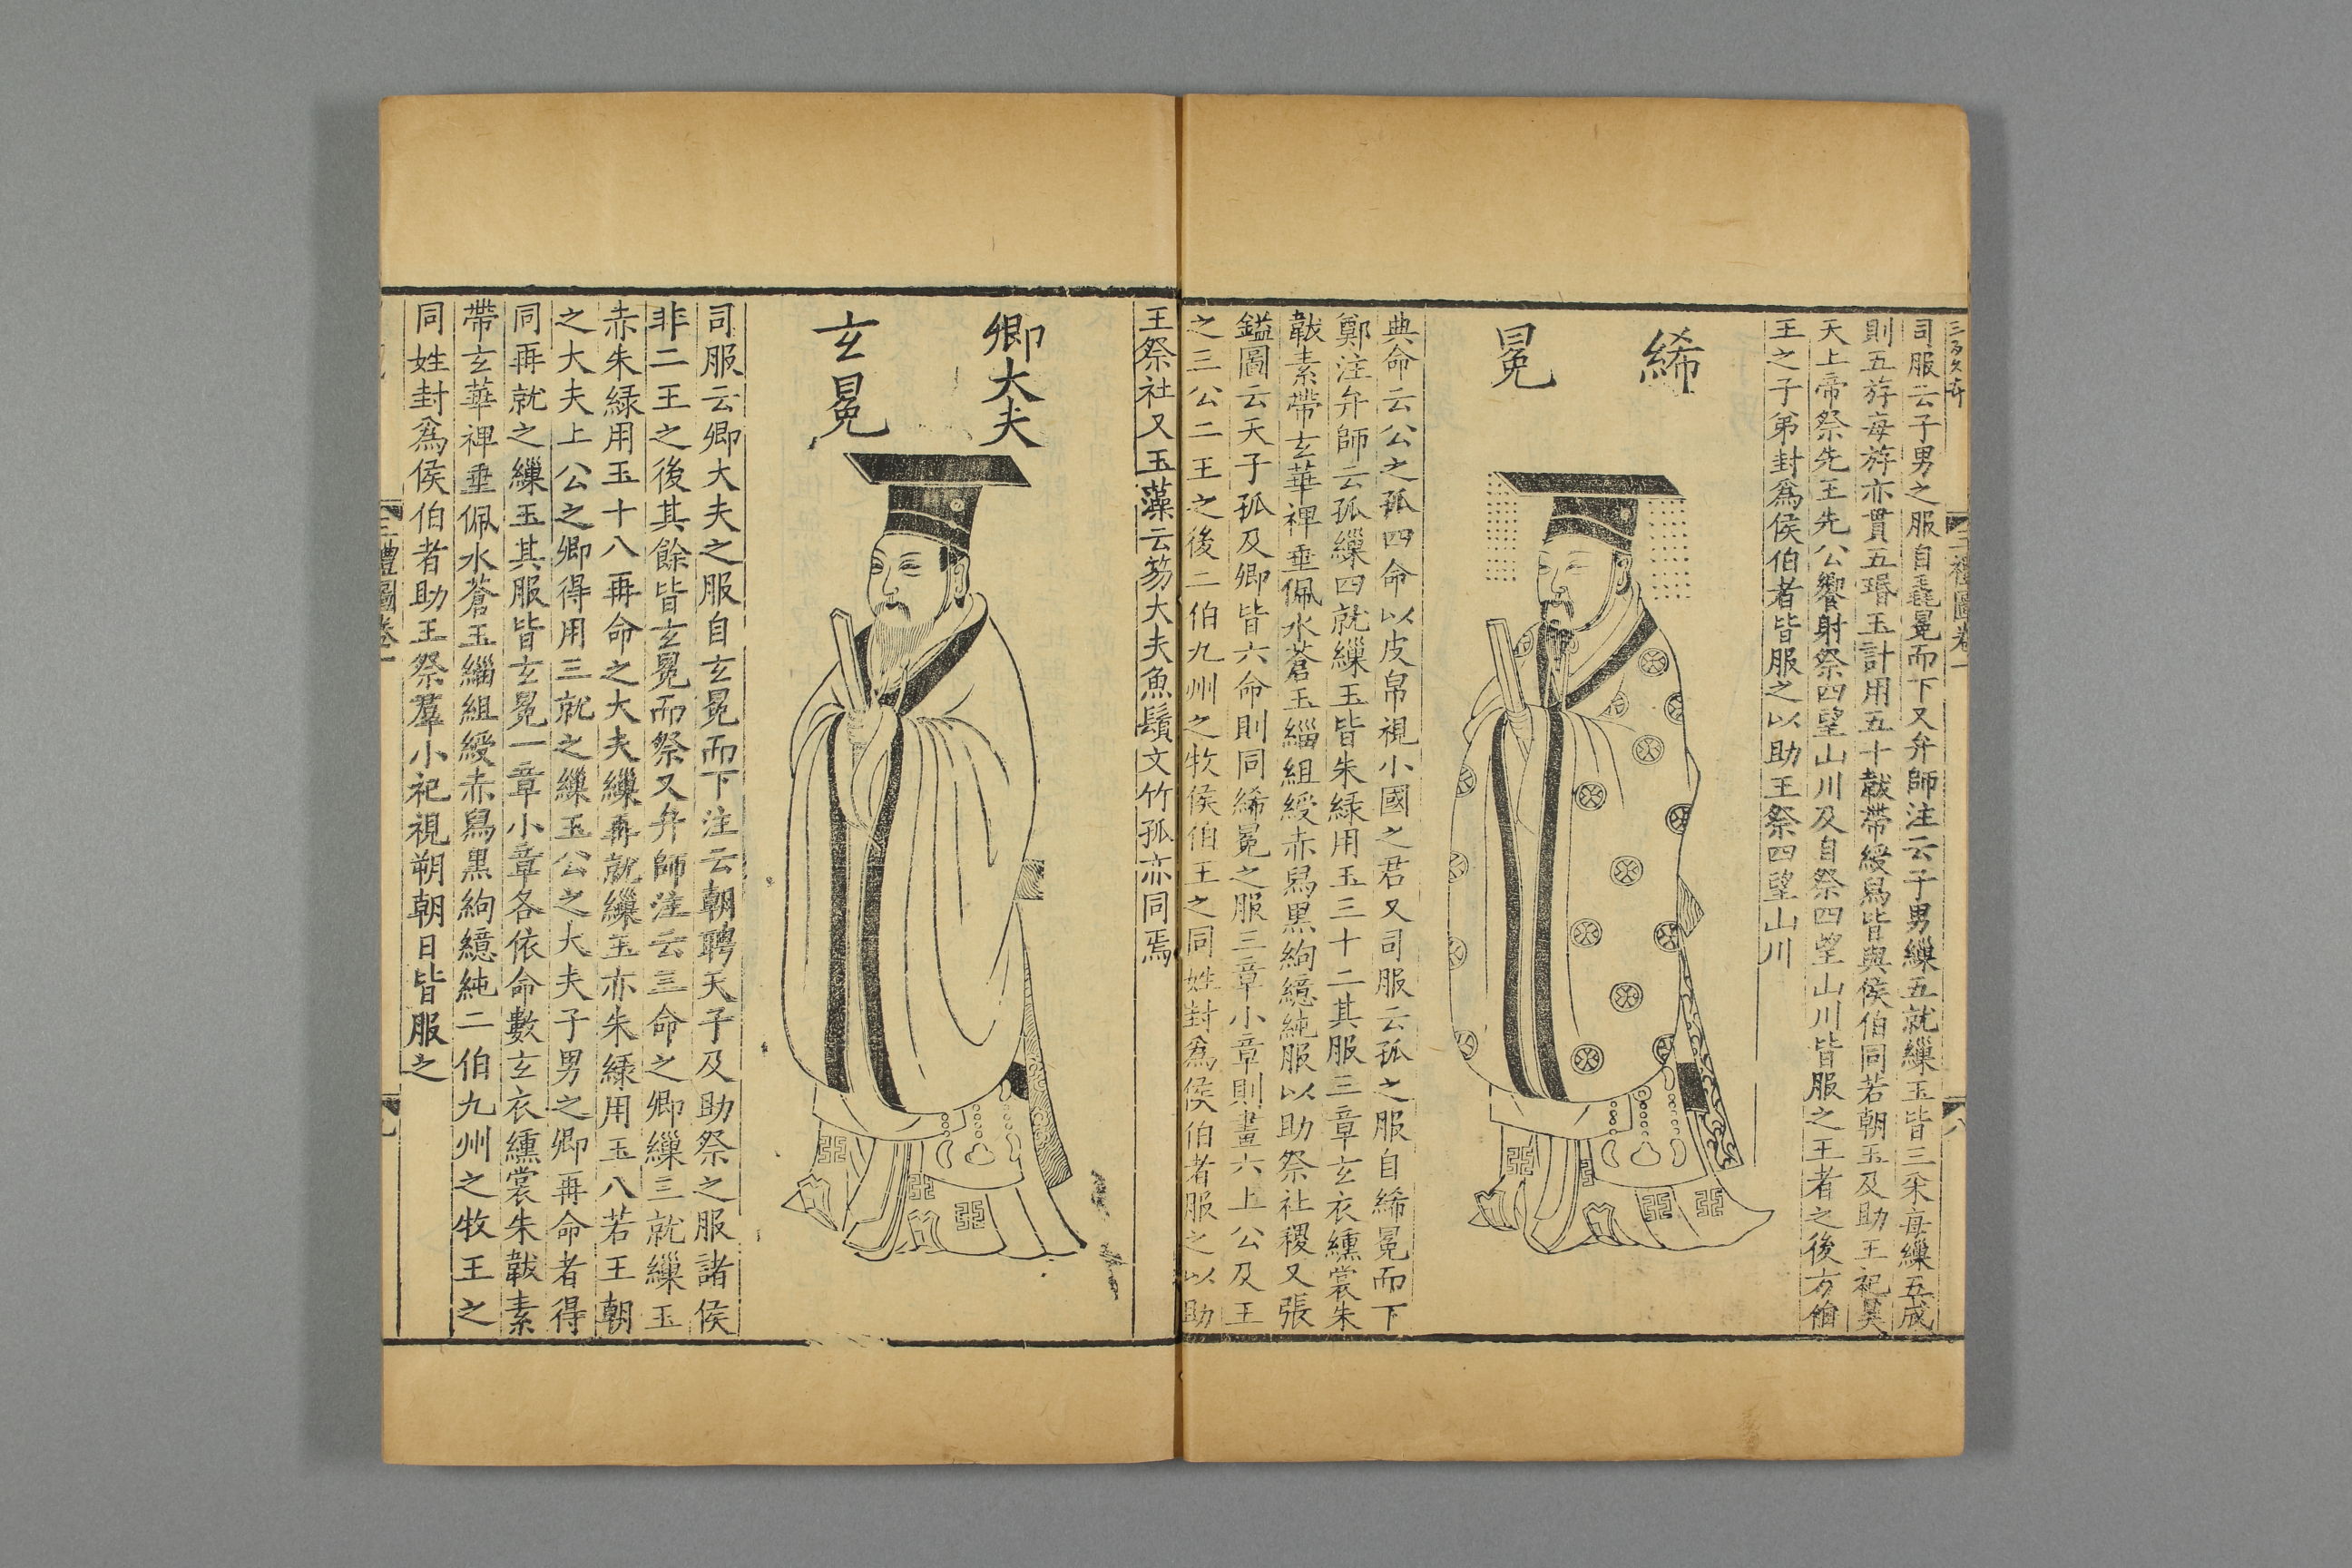 三禮圖卷一
八
司服云子男之服自毳冕而下又弁師注云子男繅五就繅玉皆三采每繅五成
則五斿每斿亦貫五瑉玉計用五十韍帶綬舄皆與侯伯同若朝王及助王祀昊
天上帝祭先王先公饗射祭四望山川及自祭四望山川皆服之王者之後方伯
王之子弟封爲侯伯者皆服之以助王祭四望山川
絺
冕
典命云公之孤四命以皮帛視小國之君又司服云孤之服自絺冕而下
鄭注弁師云孤繅四就繅玉皆朱綠用玉三十二其服三章玄衣纁裳朱
韍素帶玄華裨垂佩水蒼玉緇組綬赤舄黑絇繶純服以助祭社稷又張
鎰圖云天子孤及卿皆六命則同絺冕之服三章小章則畫六上公及王
之三公二王之後二伯九州之牧侯伯王之同姓封爲侯伯者服之以助
王祭社又玉藻云笏大夫魚鬚文竹孤亦同焉
卿大夫
玄冕
司服云卿大夫之服自玄冕而下注云朝聘天子及助祭之服諸侯
非二王之後其餘皆玄冕而祭又弁師注云三命之卿繅三就繅玉
赤朱綠用玉十八再命之大夫繅再就繅玉亦朱綠用玉八若王朝
之大夫上公之卿得用三就之繅玉公之大夫子男之卿再命者得
同再就之繅玉其服皆玄冕一章小章各依命數玄衣纁裳朱韍素
帶玄華裨垂佩水蒼玉緇組綬赤舄黑絇繶純二伯九州之牧王之
同姓封爲侯伯者助王祭羣小祀視朔朝日皆服之
三禮圖卷一
九